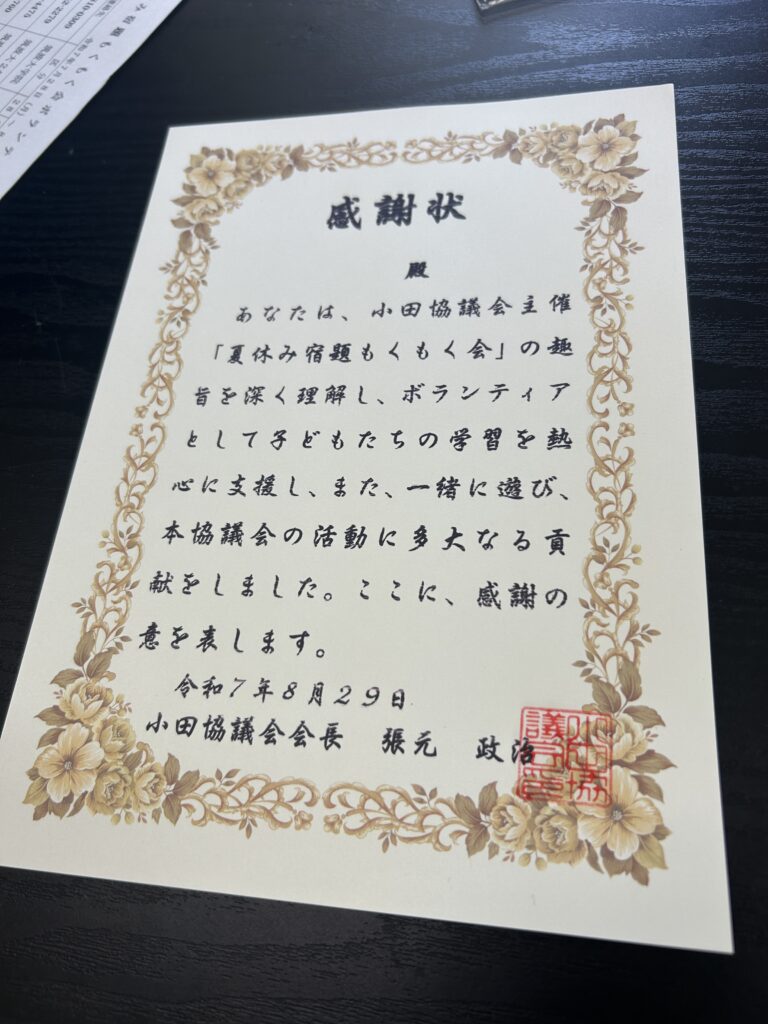 感謝状
殿
あなたは、小田協議会主催
「夏休み宿題もくもく会」の趣
旨を深く理解し、ボランティア
として子どもたちの学習を熱
心に支援し、また、一緒に遊び、
本協議会の活動に多大なる貢
献をしました。ここに、感謝の
意を表します。
令和7年8月29日
小田協議会会長 張元 政治